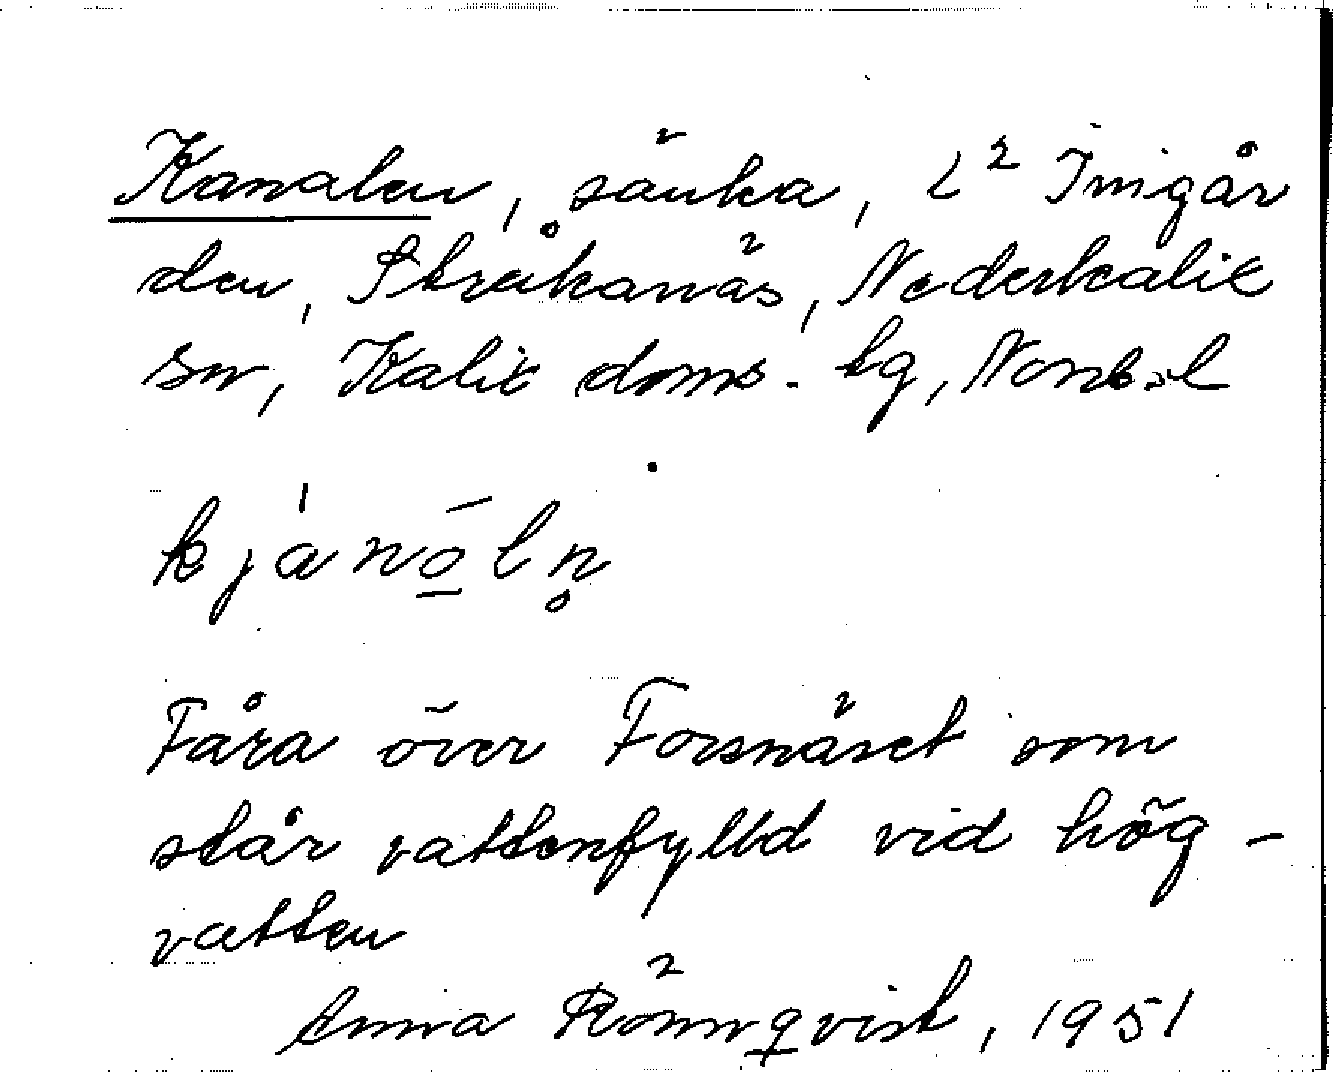 Kanalen, sänka, L² Inigår
den, Stråkanäs, Nederkalix
sn, Kalix doms. tg, Norrb.l
kjánóln̥
Fåra över Forsnäset som
står vattenfylld vid hög-
vatten
Anna Rönnqvist, 1951